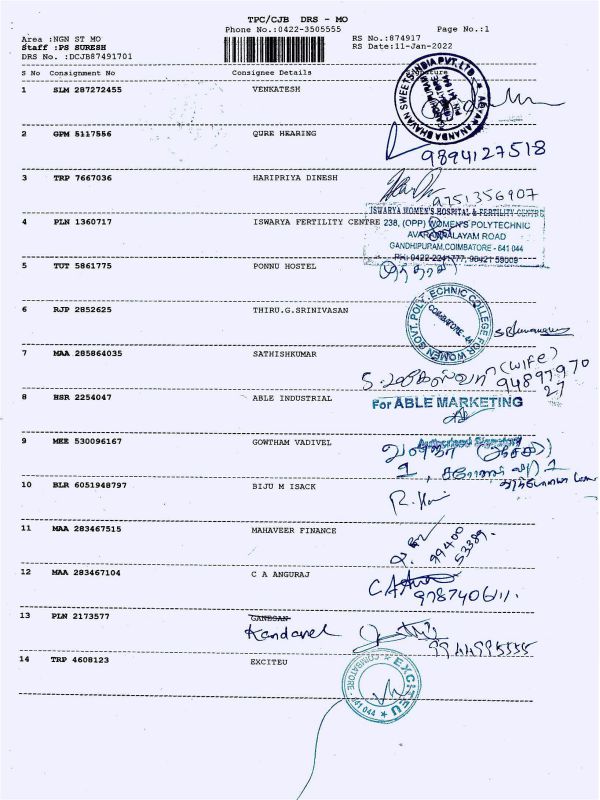 TPC/CJB DRS - MO
Phone No.:0422-3505555
Page No.:1
Area :NGN ST MO
RS No.:874917
Staff :PS SURESH
RS Date:11-Jan-2022
DRS No. :DCJB87491701
S No Consignment No Consignee Details Signature
1 SLM 287272455 VENKATESH
ADYAR ANANDA BHAVAN SWEETS INDIA PVT. LTD.
2 GPM 5117556 QURE HEARING
9894127518
3 TRP 7667036 HARIPRIYA DINESH
9751356907
ISWARYA WOMEN'S HOSPITAL & FERTILITY CENTRE
4 PLN 1360717 ISWARYA FERTILITY CENTRE 238, (OPP) WOMEN'S POLYTECHNIC
ROAD
GANDHIPURAM, COIMBATORE - 641 044
PH: 0422-2241777, 98421 59009
5 TUT 5861775 PONNU HOSTEL
6 RJP 2852625 THIRU.G.SRINIVASAN
GOVT. POLYTECHNIC COLLEGE FOR WOMEN
COIMBATORE-44
7 MAA 285864035 SATHISHKUMAR
(wife)
94897970
27
8 HSR 2254047 ABLE INDUSTRIAL
For ABLE MARKETING
Authorised Signatory
9 MEE 530096167 GOWTHAM VADIVEL
10 BLR 6051948797 BIJU M ISACK
11 MAA 283467515 MAHAVEER FINANCE
99400
53389.
12 MAA 283467104 C A ANGURAJ
9787406111.
13 PLN 2173577 GANESAN
Kandavel
9944995555
14 TRP 4608123 EXCITEU
EXCITEU
COIMBATORE - 641 044